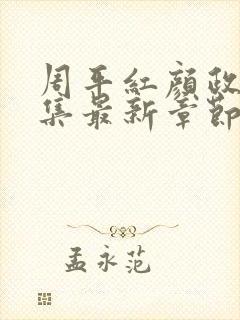 周平紅顏政
集最新章節
孟永范